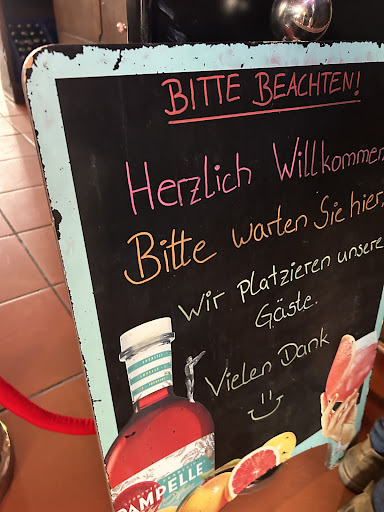 BITTE BEACHTEN!
Herzlich Willkommen
Bitte warten Sie hier,
Wir platzieren unsere
Gäste.
Vielen Dank
PAMPELLE